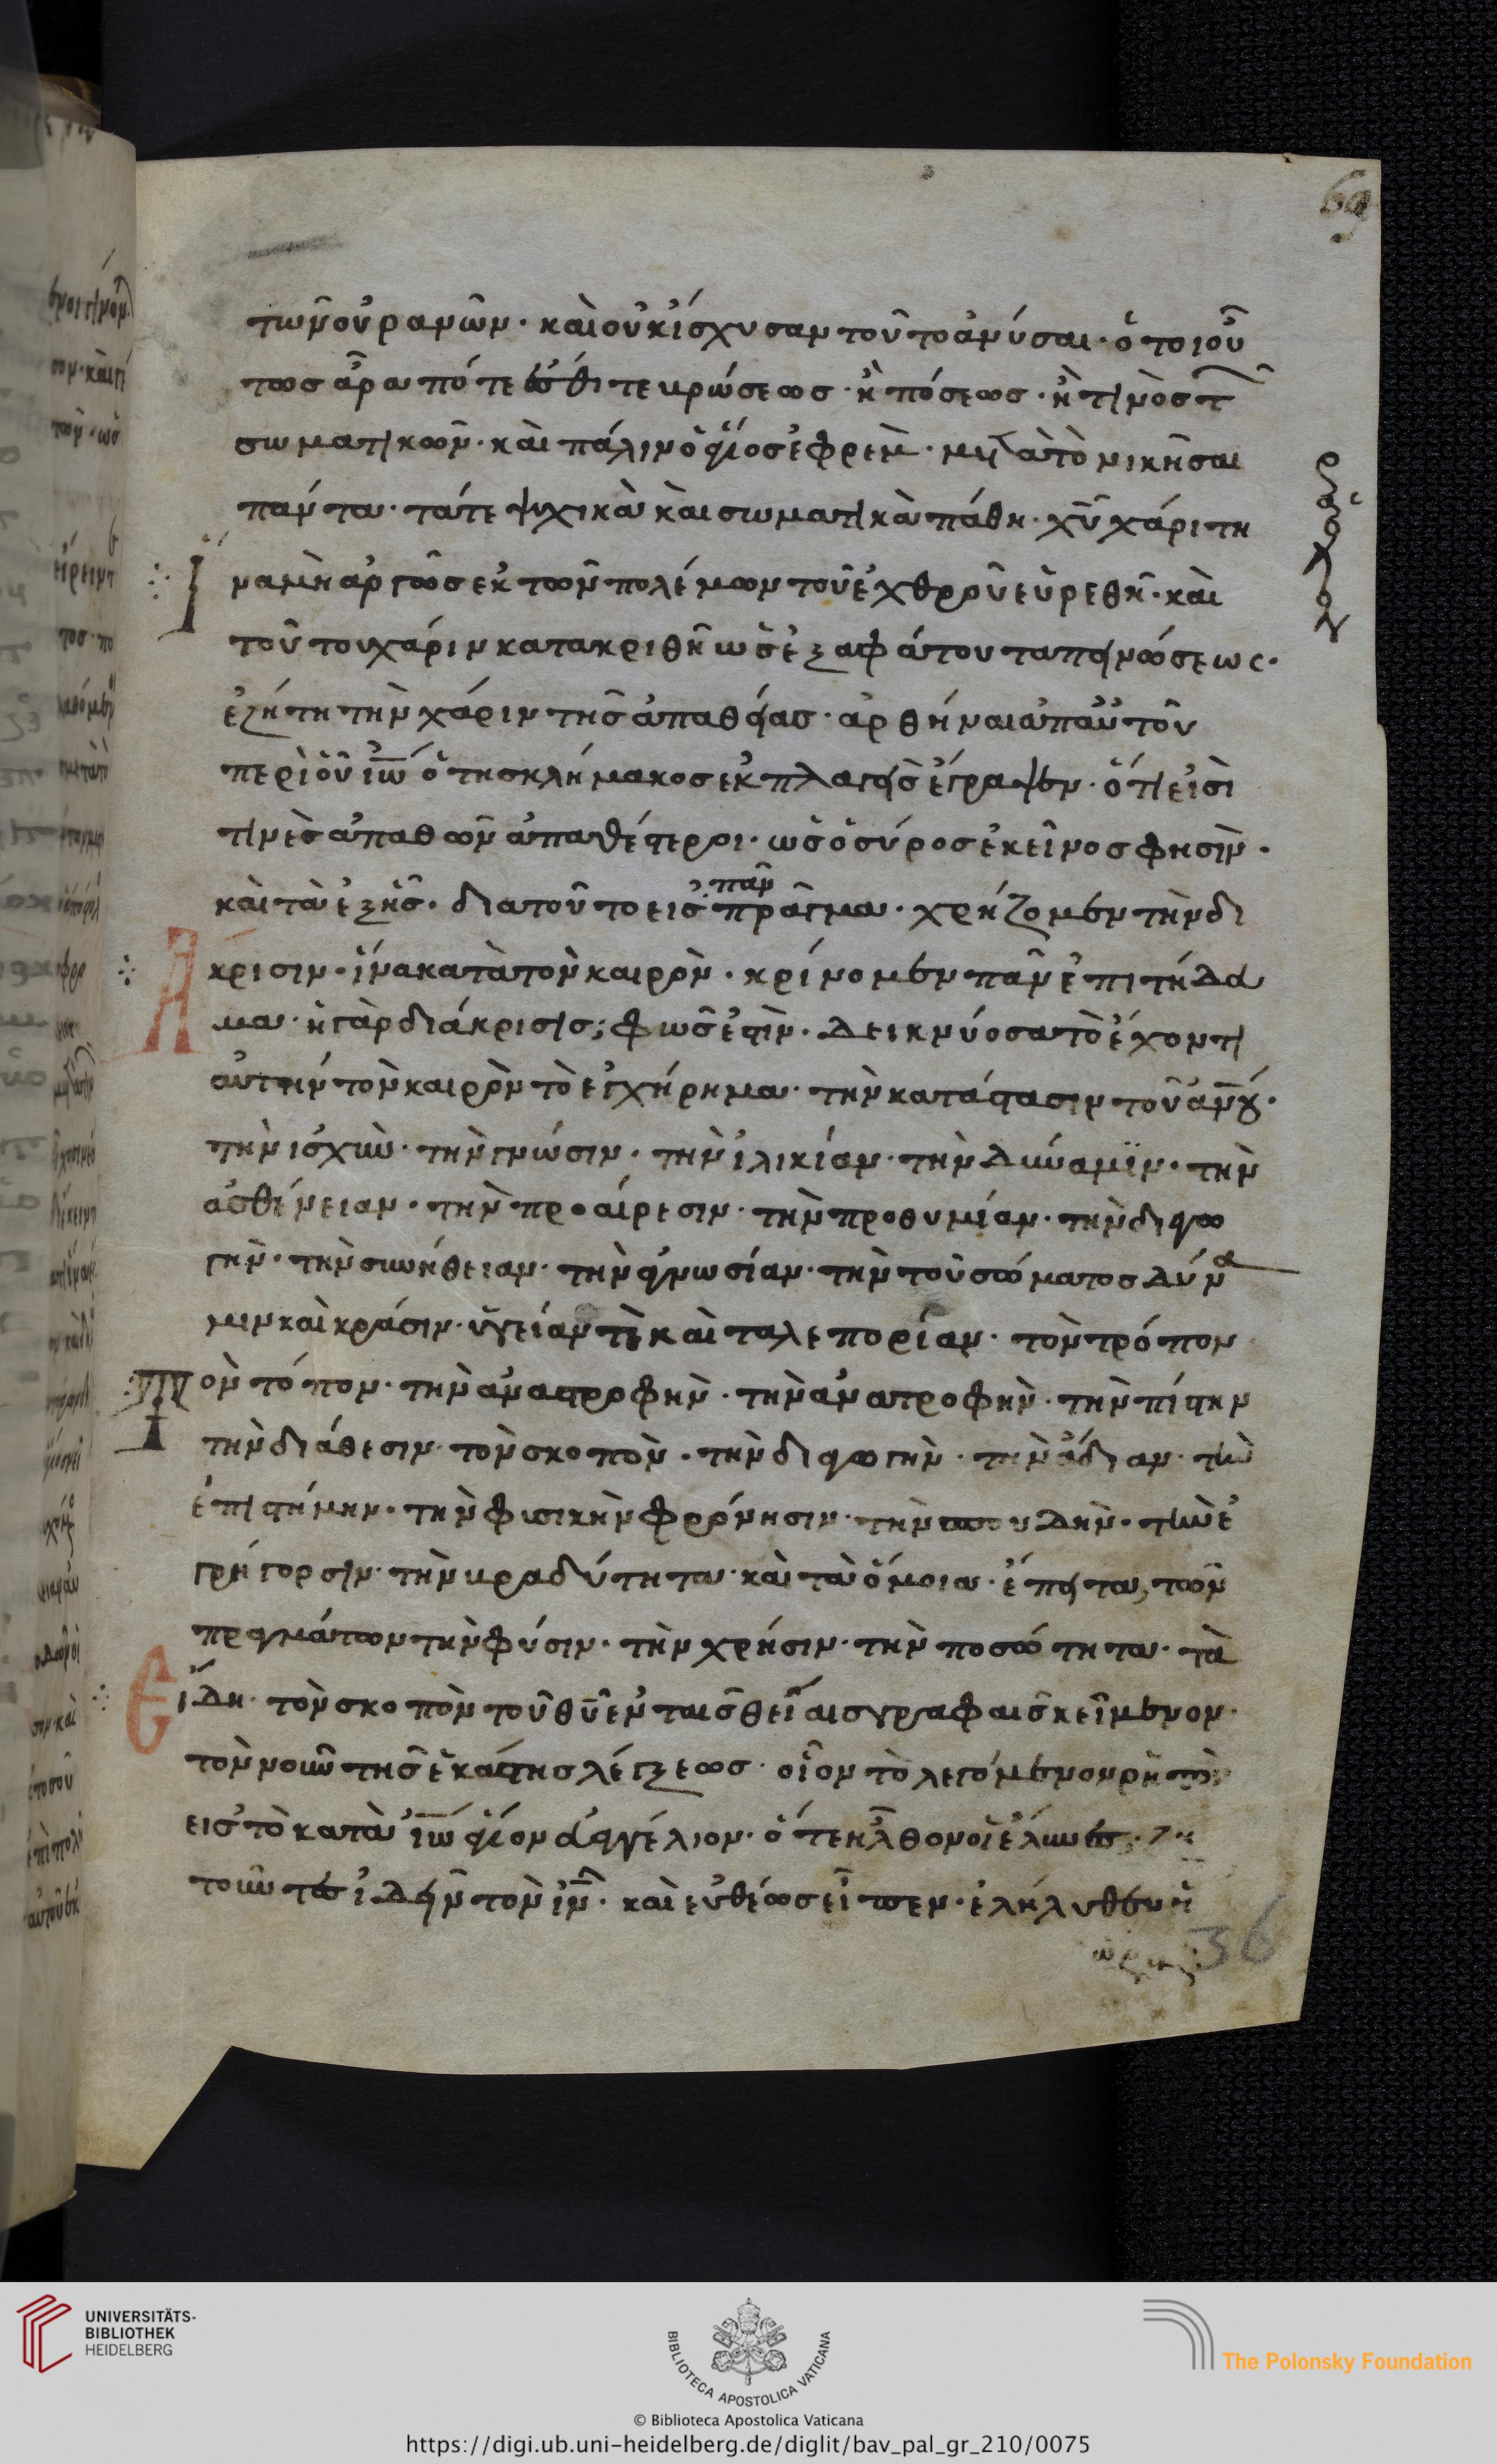 τῶν οὐρανῶν· καὶ οὐκ ἴσχυσαν τοῦτο ἀνύσαι· ὁ τοιοῦ
τως ἆρα πότε ἐσθιτε βρώσεως· ἢ πόσεως· ἢ τινὸς τ
σωματηκῶν· καὶ πάλιν ὁ ἅγιος ἐφρὲμ· μετὰ τὸ νικῆσαι
πάντα· τά τε ψυχικὰ καὶ σωματηκὰ πάθη· χῦ χάριτη
Ἵνα μὴ ἀργῶς ἐκ τῶν πολέμων τοῦ ἐχθροῦ εὑρεθῆ· καὶ
τούτου χάριν κατακριθῆ ὡς ἐξ ἀφάτου ταπεινώσεως·
ἐζήτη τὴν χάριν τῆς ἀπαθείας· ἀρθήναι ἀπαὐτοῦ
περὶ οὗ ἰῶ ὁ τῆς κλήμακος ἐκπλαγεὶς ἔγραψεν· ὅτι εἰσὶ
τινὲς ἀπαθῶν ἀπαθέστεροι· ὡς ὁ σύρος ἐκεῖνος φησὶν·
καὶ τὰ ἐξῆς· διατοῦτο εἰς πᾶν πρᾶγμα· χρήζομεν τὴν δι
Ακρισιν· ἵνα κατὰ τὸν καιρὸν· κρίνομεν πᾶν ἐπιτήδευ
μα· ἡ γὰρ διάκρισις; φῶς ἐστὶν· δεικνύοσα τὸ ἔχοντι
αὐτὴν τὸν καιρὸν τὸ ἐγχήρημα· τὴν κατάστασιν τοῦ ἀνου·
τὴν ισχὺν· τὴν γνώσιν· τὴν ἱλικίαν· τὴν δύναμϊν· τὴν
ἀσθένειαν· τὴν προαίρεσιν· τὴν προθυμίαν· τὴν διαγω
γὴν· τὴν συνήθειαν· τὴν ἀγνωσίαν· τὴν τοῦ σώματος δύνα
μιν καὶ κράσιν· ὑγείαν τὲ καὶ ταλεπορίαν· τὸν τρόπον
Τὸν τόπον· τὴν ἀναστροφὴν· τὴν ἀνατροφὴν· τὴν πίστην
τὴν διάθεσιν· τὸν σκοπὸν· τὴν διαγωγὴν· τὴν ἄδιαν· τὴν
ἐπιστήμην· τὴν φυσικὴν φρόνησιν· τὴν σπουδὴν· τὴν ἐ
γρήγορσιν· τὴν βραδύτητα· καὶ τὰ ὅμοια· ἔπειτα, τῶν
πραγμάτων τὴν φύσιν· τὴν χρήσιν· τὴν ποσώτητα· τὰ
Είδη· τὸν σκοπὸν τοῦ θῦ ἐν ταῖς θείαις γραφαῖς κείμενον·
τὸν νοῦν τῆς ἑκάστης λέγξεως· οἷον τὸ λεγόμενον ρητὸν
εις τὸ κατὰ ἰῶ ἅγιον εὐαγγέλιον· ὅτε ἦλθον οἱ ἕλληνες· ζη
τοῦντες ἰδεῖν τὸν ἰν· καὶ εὐθέως εἶπεν· ἐλήλυθεν ἡ
ὥρα
36
69
UNIVERSITÄTS-
BIBLIOTHEK
HEIDELBERG
BIBLIOTECA APOSTOLICA VATICANA
The Polonsky Foundation
© Biblioteca Apostolica Vaticana
https://digi.ub.uni-heidelberg.de/diglit/bav_pal_gr_210/0075